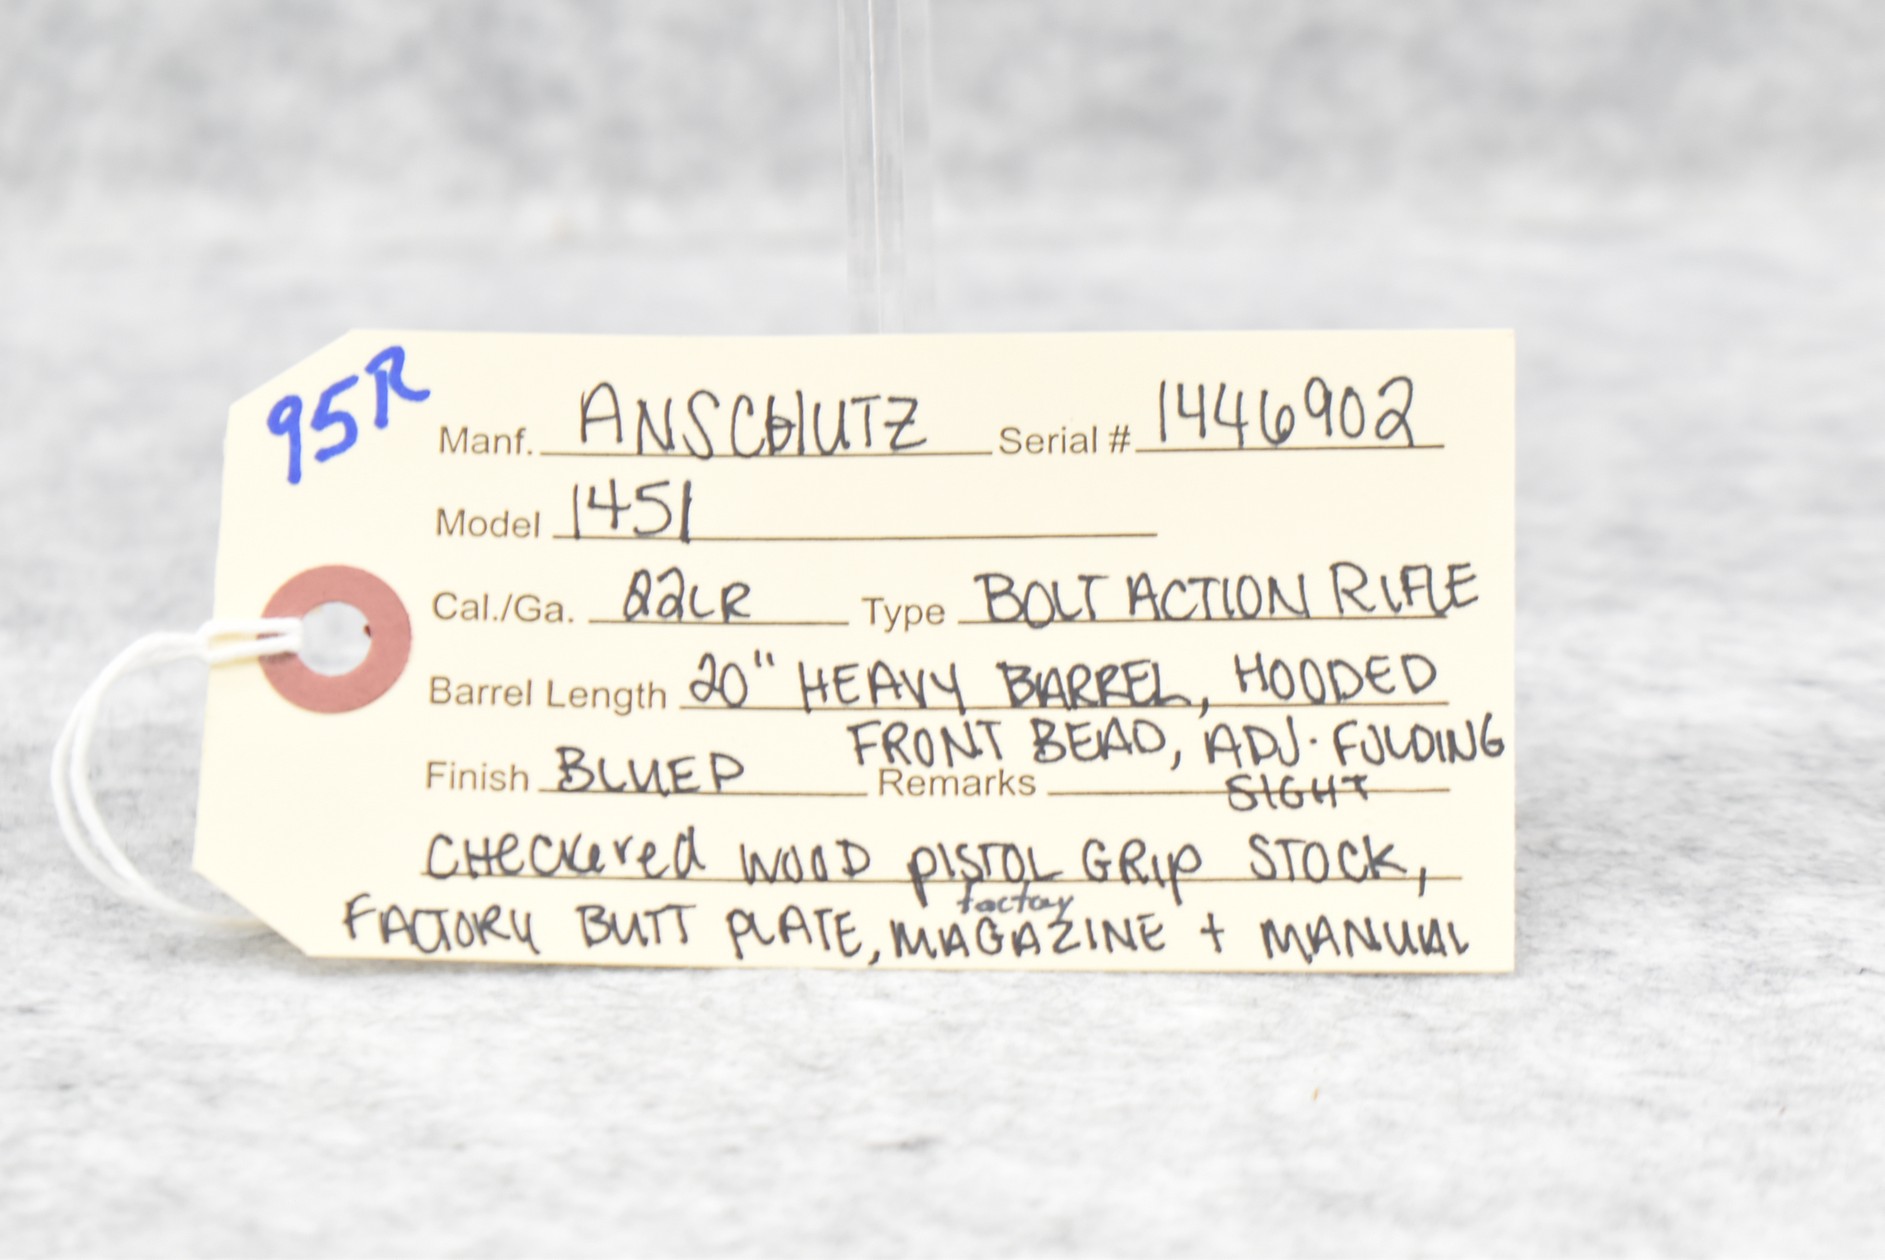 95R
Manf. ANSCHUTZ Serial # 1446902
Model 1451
Cal./Ga. 22LR Type BOLT ACTION RIFLE
Barrel Length 20" HEAVY BARREL, HOODED
FRONT BEAD, ADJ. FOLDING
Finish BLUED Remarks SIGHT
CHECKered WOOD PISTOL GRIP STOCK,
factory
FACTORY BUTT PLATE, MAGAZINE + MANUAL